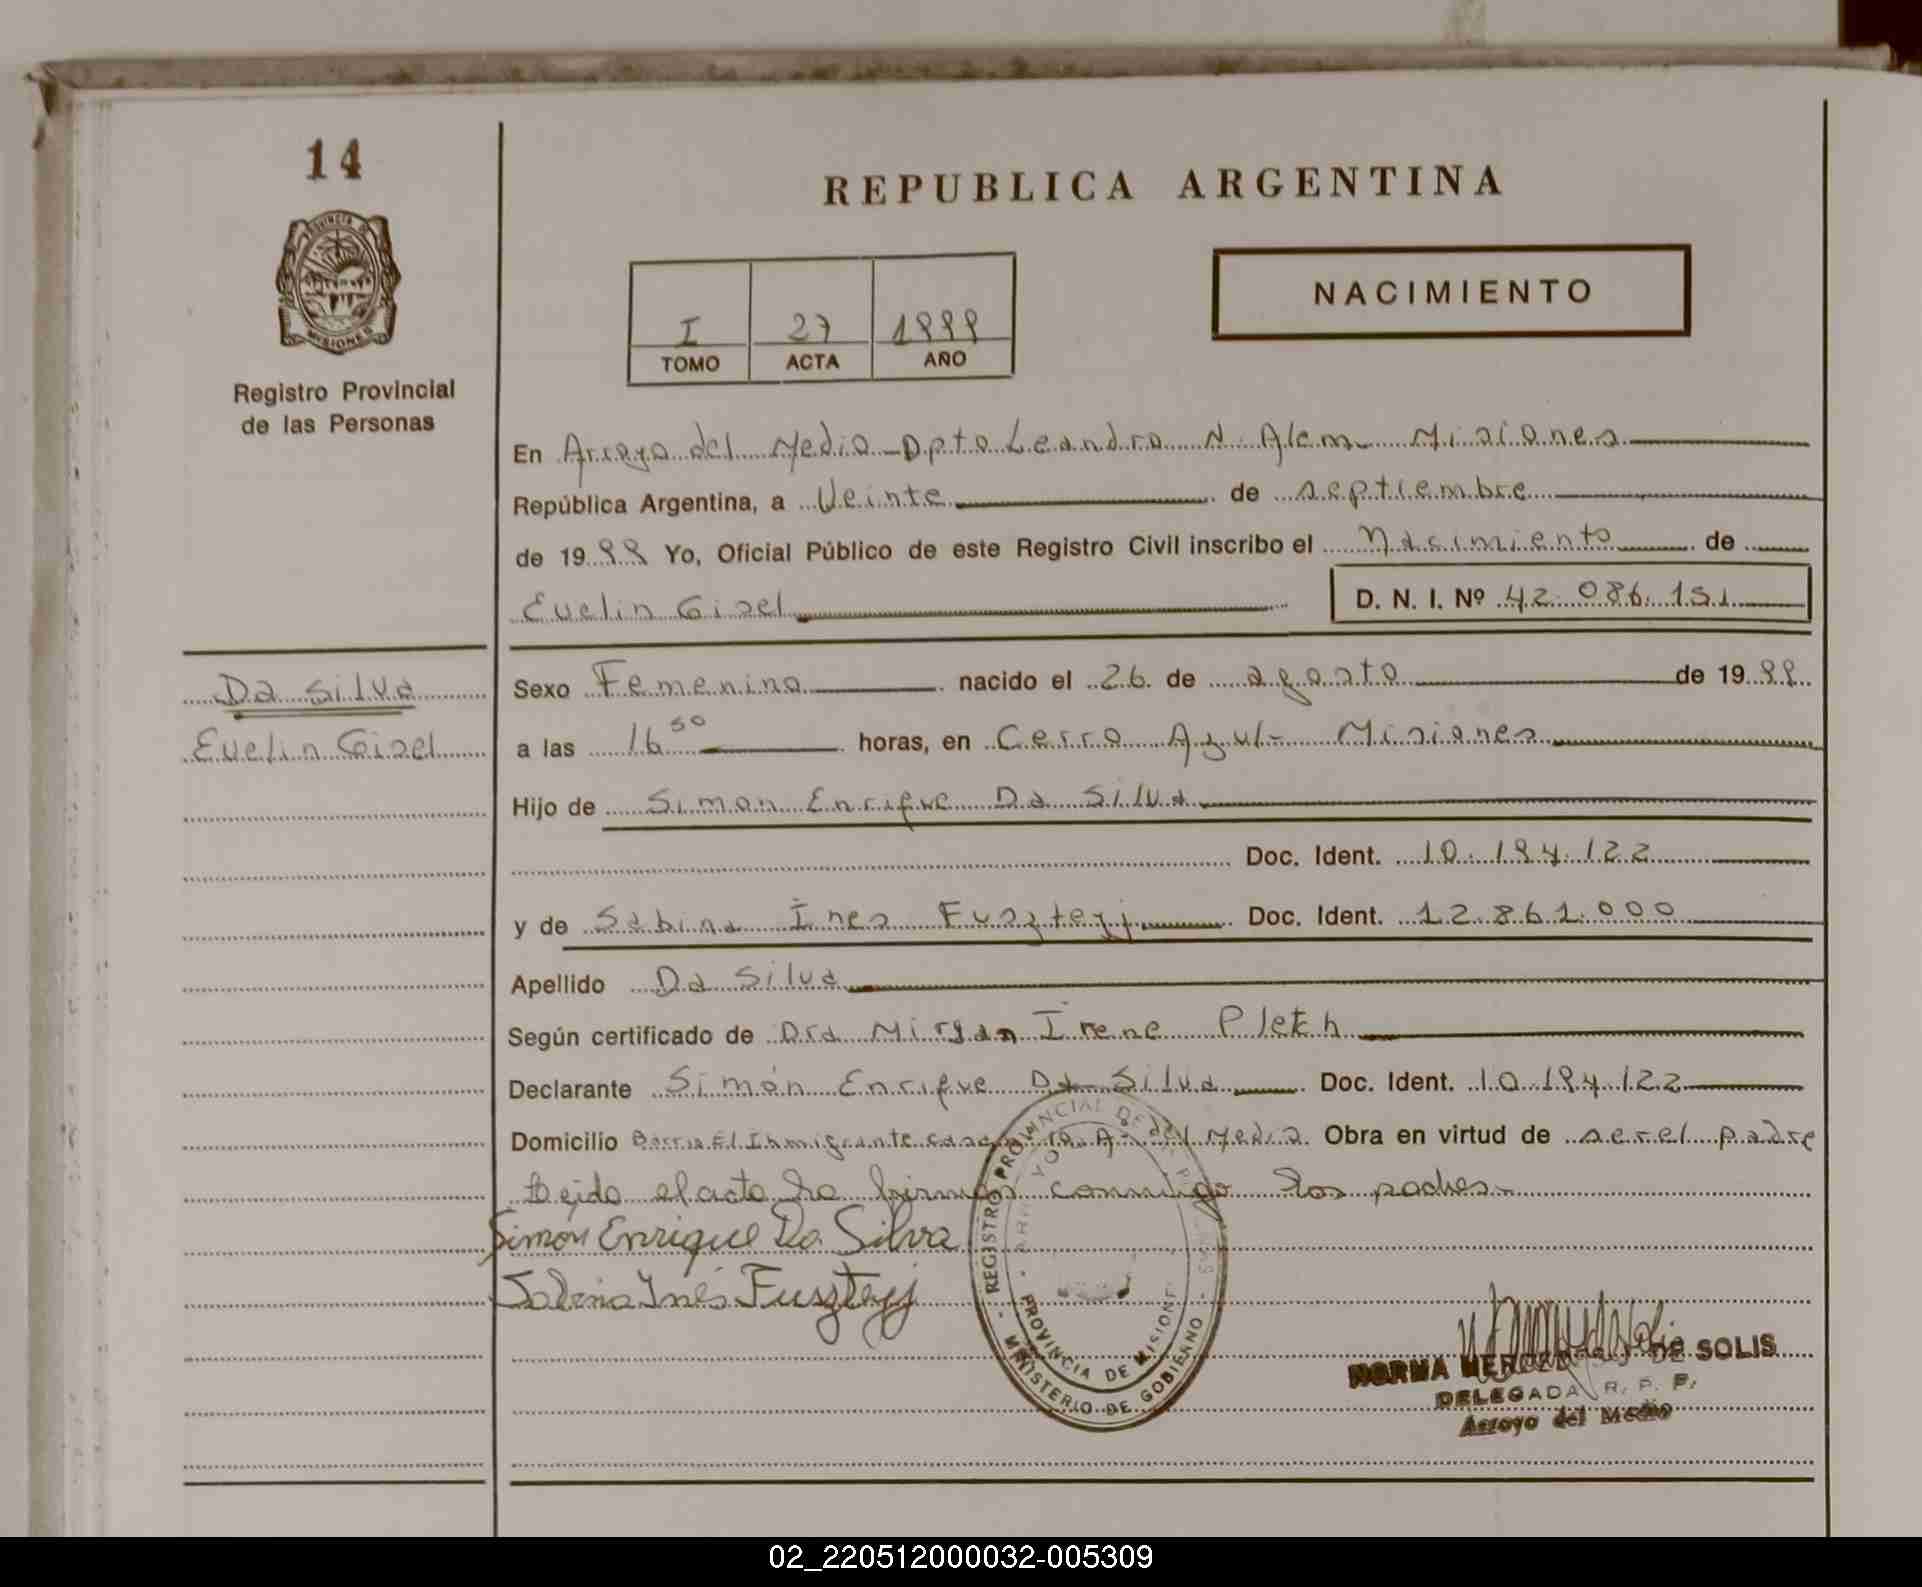 14
REPUBLICA ARGENTINA
PROVINCIA DE MISIONES
NACIMIENTO
I 27 1999
TOMO ACTA AÑO
Registro Provincial
de las Personas
En Arroyo del Medio - Dpto Leandro N. Alem - Misiones
República Argentina, a Veinte de septiembre
de 1999 Yo, Oficial Público de este Registro Civil inscribo el Nacimiento de
Evelin Gisel D. N. I. Nº 42.086.151
Da Silva
Evelin Gisel
Sexo Femenino nacido el 26 de agosto de 1999
a las 16 50 horas, en Cerro Azul - Misiones
Hijo de Simon Enrique Da Silva
Doc. Ident. 10.194.122
y de Sabina Ines Fusztejj Doc. Ident. 12.861.000
Apellido Da Silva
Según certificado de Dra Miryan Irene Pletch
Declarante Simón Enrique Da Silva Doc. Ident. 10.194.122
Domicilio Barrio El Inmigrante casa 10 A. del Medio. Obra en virtud de ser el padre
Leido el acta la firman conmigo los padres-
Simon Enrique Da Silva
Sabina Inés Fusztejj
- REGISTRO PROVINCIAL DE LAS PERSONAS -
MINISTERIO DE GOBIERNO
ARROYO DEL
PROVINCIA DE MISIONES
NORMA MERCEDES DE SOLIS
DELEGADA R. P. P.
Arroyo del Medio
02_220512000032-005309